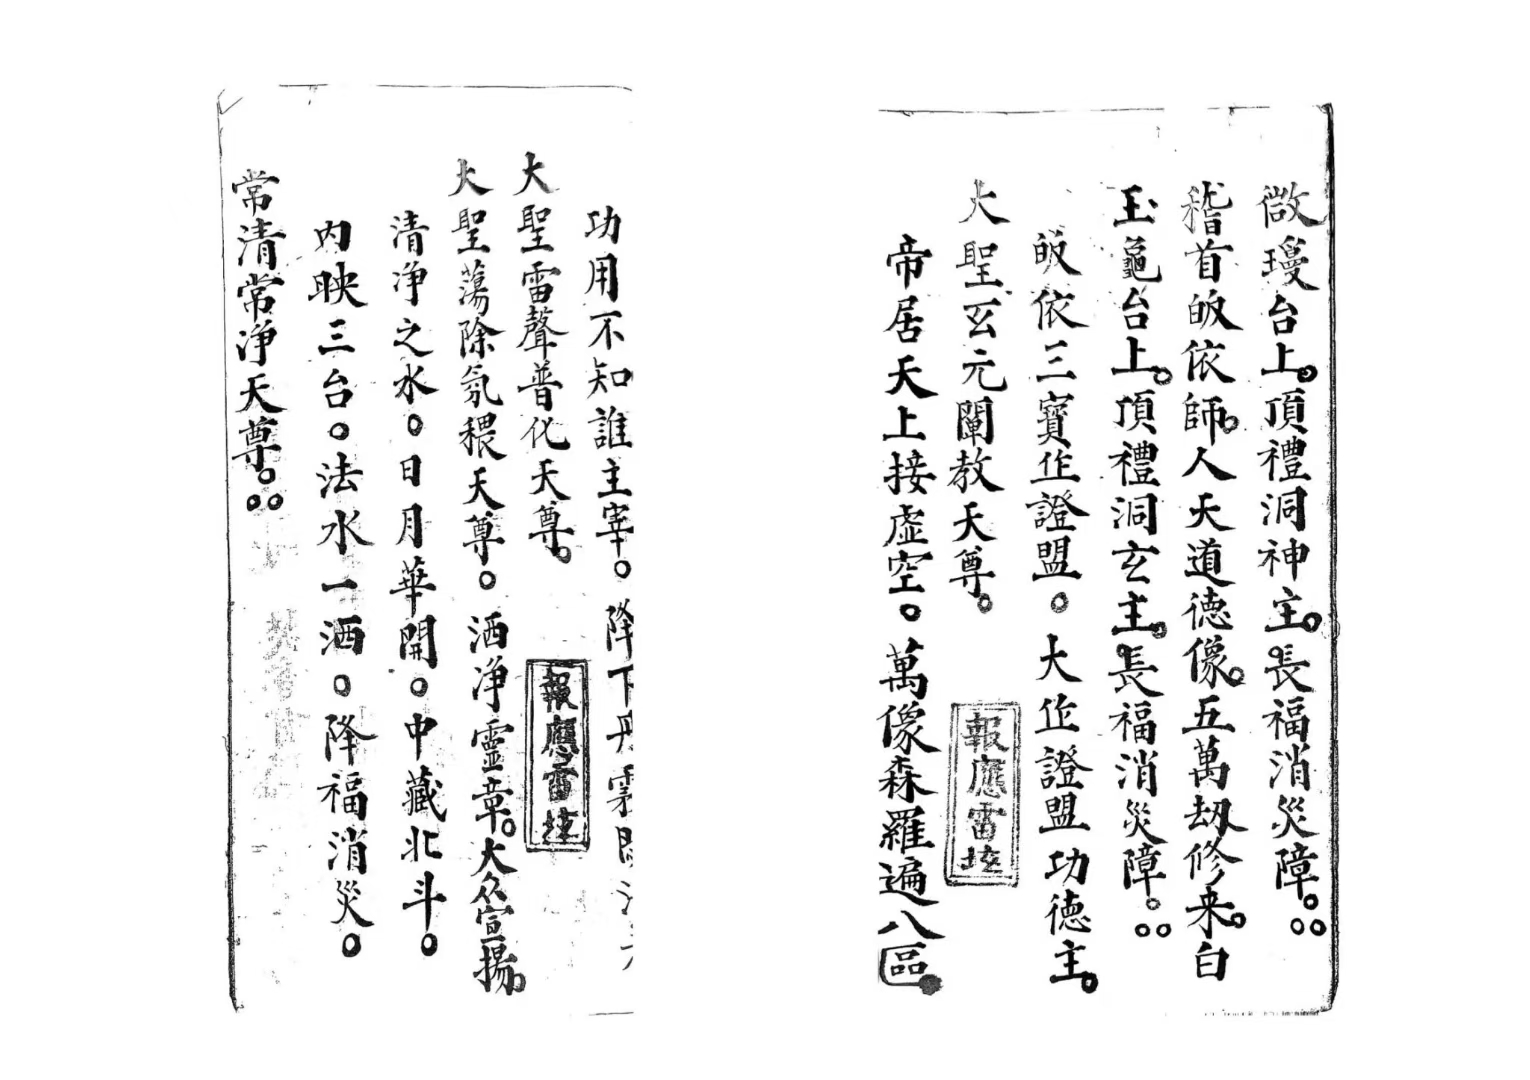 微璗台上。頂禮洞神主。長福消災障。
稽首皈依師。人天道德像。五萬刼修来。白
玉龜台上。頂禮洞玄主。長福消災障。
皈依三寳作證盟。大作證盟功德主。
大聖玄元闡教天尊。
報應雷坛
帝居天上接虚空。萬像森羅遍八區。
功用不知誰主宰。降下丹霄
大聖雷聲普化天尊。
報應雷坛
大聖蕩除氛穢天尊。洒浄靈章。大众宣揚。
清浄之水。日月華開。中藏北斗。
内映三台。法水一洒。降福消災。
常清常浄天尊。